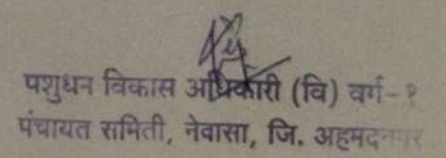 पशुधन विकास अधिकारी (वि) वर्ग-१
पंचायत समिती, नेवासा, जि. अहमदनगर